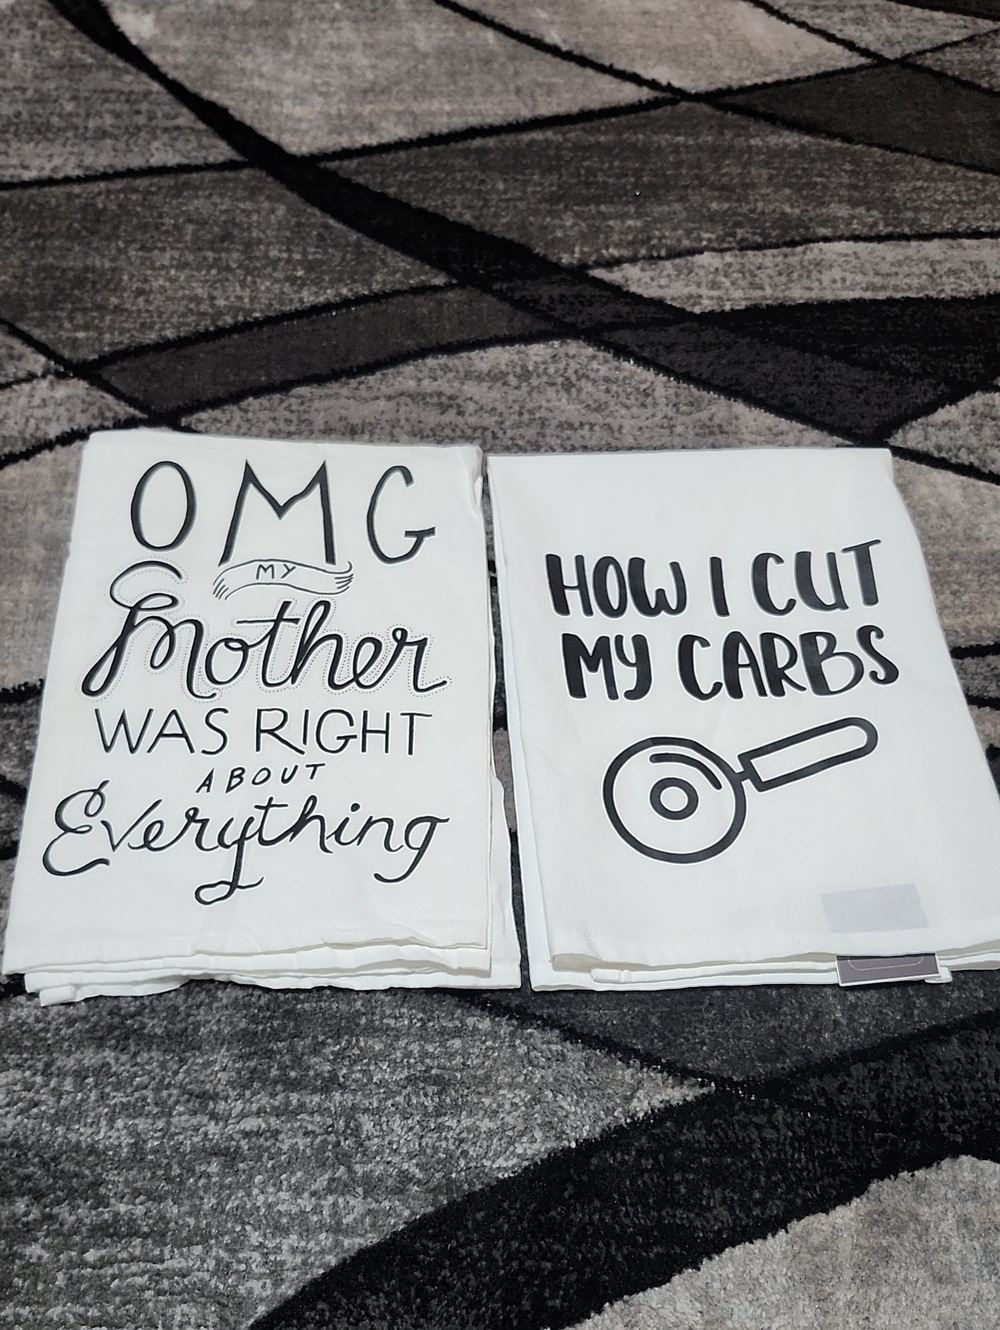 OMG
MY
Mother
WAS RIGHT
ABOUT
Everything
HOW I CUT
MY CARBS